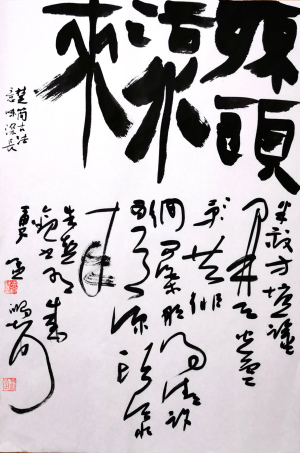 源頭
活水
來
楚简古法
意味深長
半畝方塘一鑑
開天光雲
影共徘
徊問渠那得清如許
為有源頭活水
來
朱熹